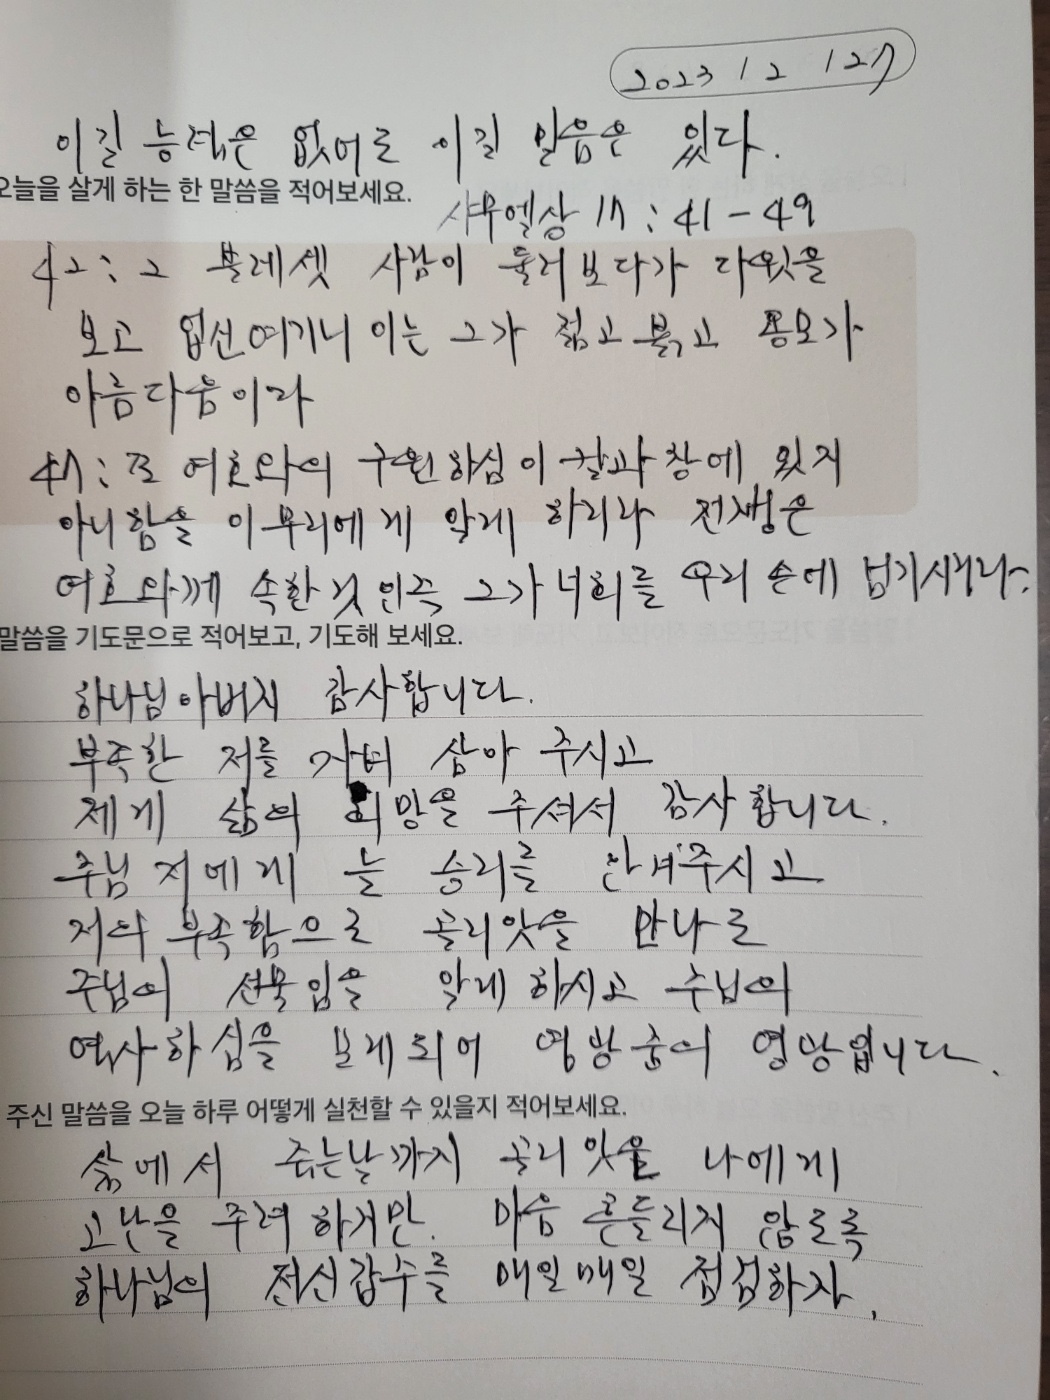 2023 12 127
이길 능력은 없어도 이길 믿음은 있다.
오늘을 살게 하는 한 말씀을 적어보세요.
사무엘상 17 : 41 - 49
42 : 그 블레셋 사람이 둘러보다가 다윗을
보고 업신여기니 이는 그가 젊고 붉고 용모가
아름다움이라
47 : 또 여호와의 구원하심이 칼과 창에 있지
아니함을 이 무리에게 알게 하리라 전쟁은
여호와께 속한 것인즉 그가 너희를 우리 손에 넘기시리라.
말씀을 기도문으로 적어보고, 기도해 보세요.
하나님 아버지 감사합니다.
부족한 저를 자녀 삼아 주시고
제게 삶의 희망을 주셔서 감사합니다.
주님 저에게 늘 승리를 안겨주시고
저의 부족함으로 골리앗을 만나도
주님의 선물임을 알게 하시고 주님의
역사하심을 보게되어 영광중의 영광입니다.
주신 말씀을 오늘 하루 어떻게 실천할 수 있을지 적어보세요.
삶에서 죽는날까지 골리앗을 나에게
고난을 주려 하지만. 마음 흔들리지 않도록
하나님의 전신갑주를 매일매일 점검하자.